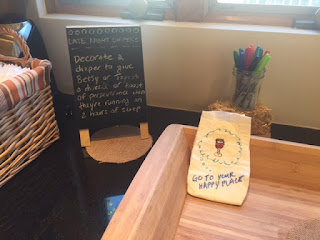 LATE NIGHT DIAPERS
Decorate a
diaper to give
Betsy or Tony in
a dose of
encouragement when
they're running on
2 hours of sleep
GO TO YOUR
HAPPY PLACE